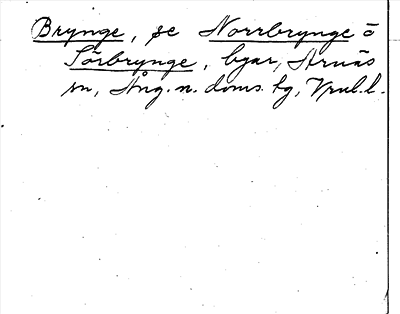 Brynge, se Norrbrynge o
Sörbrynge, byar, Arnäs
sn, Ång. n. doms. fg, Vnl. l.